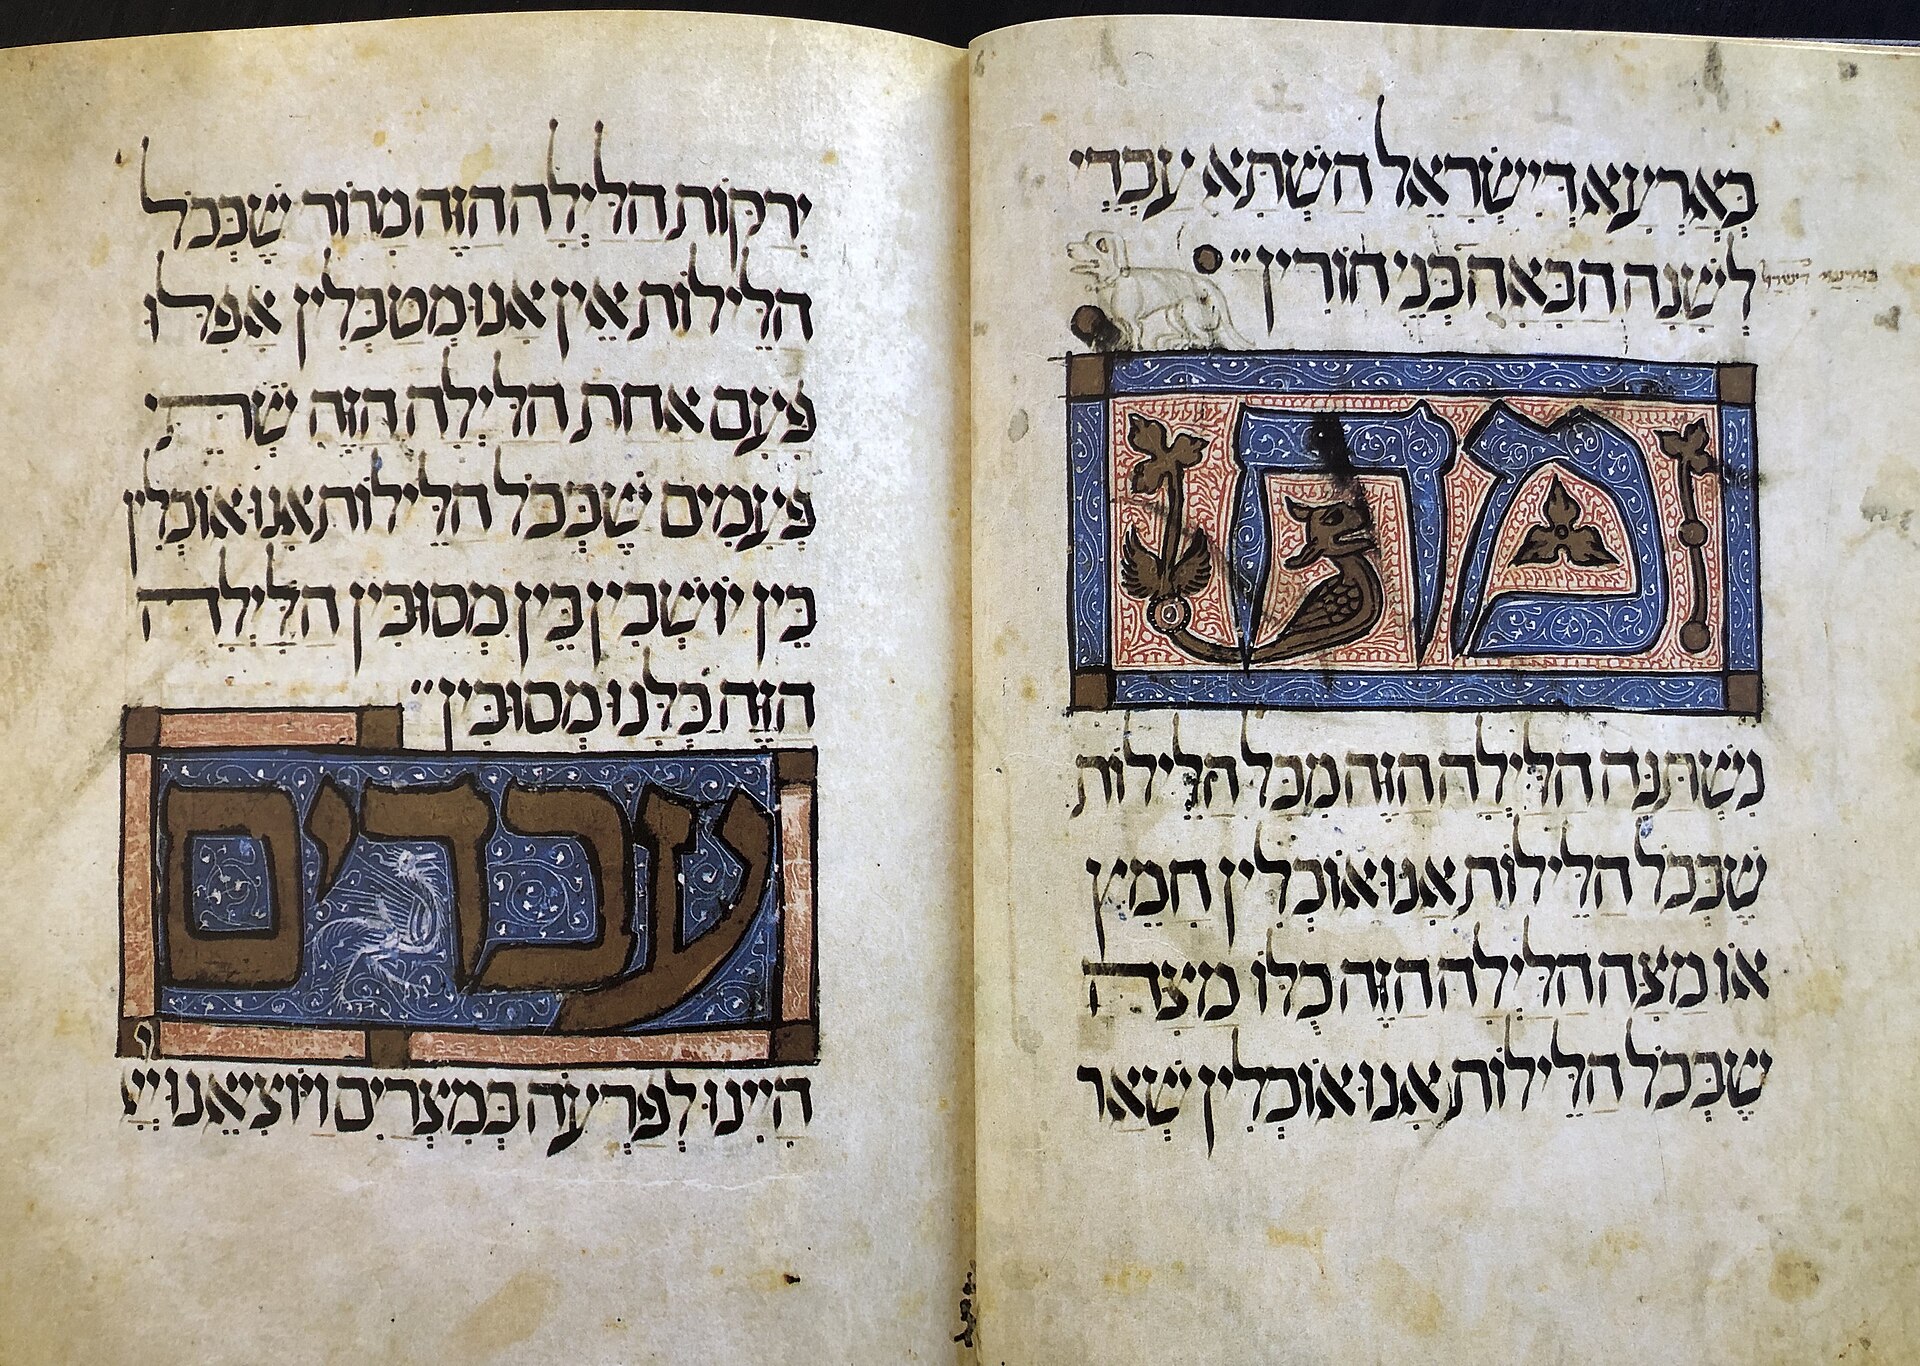 בְּאַרְעָא דְּיִשְׂרָאֵל הַשַּׁתָּא עַבְדֵי
לְשָׁנָה הַבָּאָה בְּנֵי חוֹרִין״
מה
נִשְׁתַּנָּה הַלַּיְלָה הַזֶּה מִכָּל הַלֵּילוֹת
שֶׁבְּכָל הַלֵּילוֹת אָנוּ אוֹכְלִין חָמֵץ
אוֹ מַצָּה הַלַּיְלָה הַזֶּה כֻּלּוֹ מַצָּה
שֶׁבְּכָל הַלֵּילוֹת אָנוּ אוֹכְלִין שְׁאָר
יְרָקוֹת הַלַּיְלָה הַזֶּה מָרוֹר שֶׁבְּכָל
הַלֵּילוֹת אֵין אָנוּ מְטַבְּלִין אֲפִלּוּ
פַּעַם אַחַת הַלַּיְלָה הַזֶּה שְׁתֵּי
פְעָמִים שֶׁבְּכָל הַלֵּילוֹת אָנוּ אוֹכְלִין
בֵּין יוֹשְׁבִין בֵּין מְסוּבִּין הַלַּיְלָה
הַזֶּה כֻּלָּנוּ מְסוּבִּין״
עבדים
הָיִינוּ לְפַרְעֹה בְּמִצְרַיִם וַיּוֹצִיאֵנוּ יְיָ